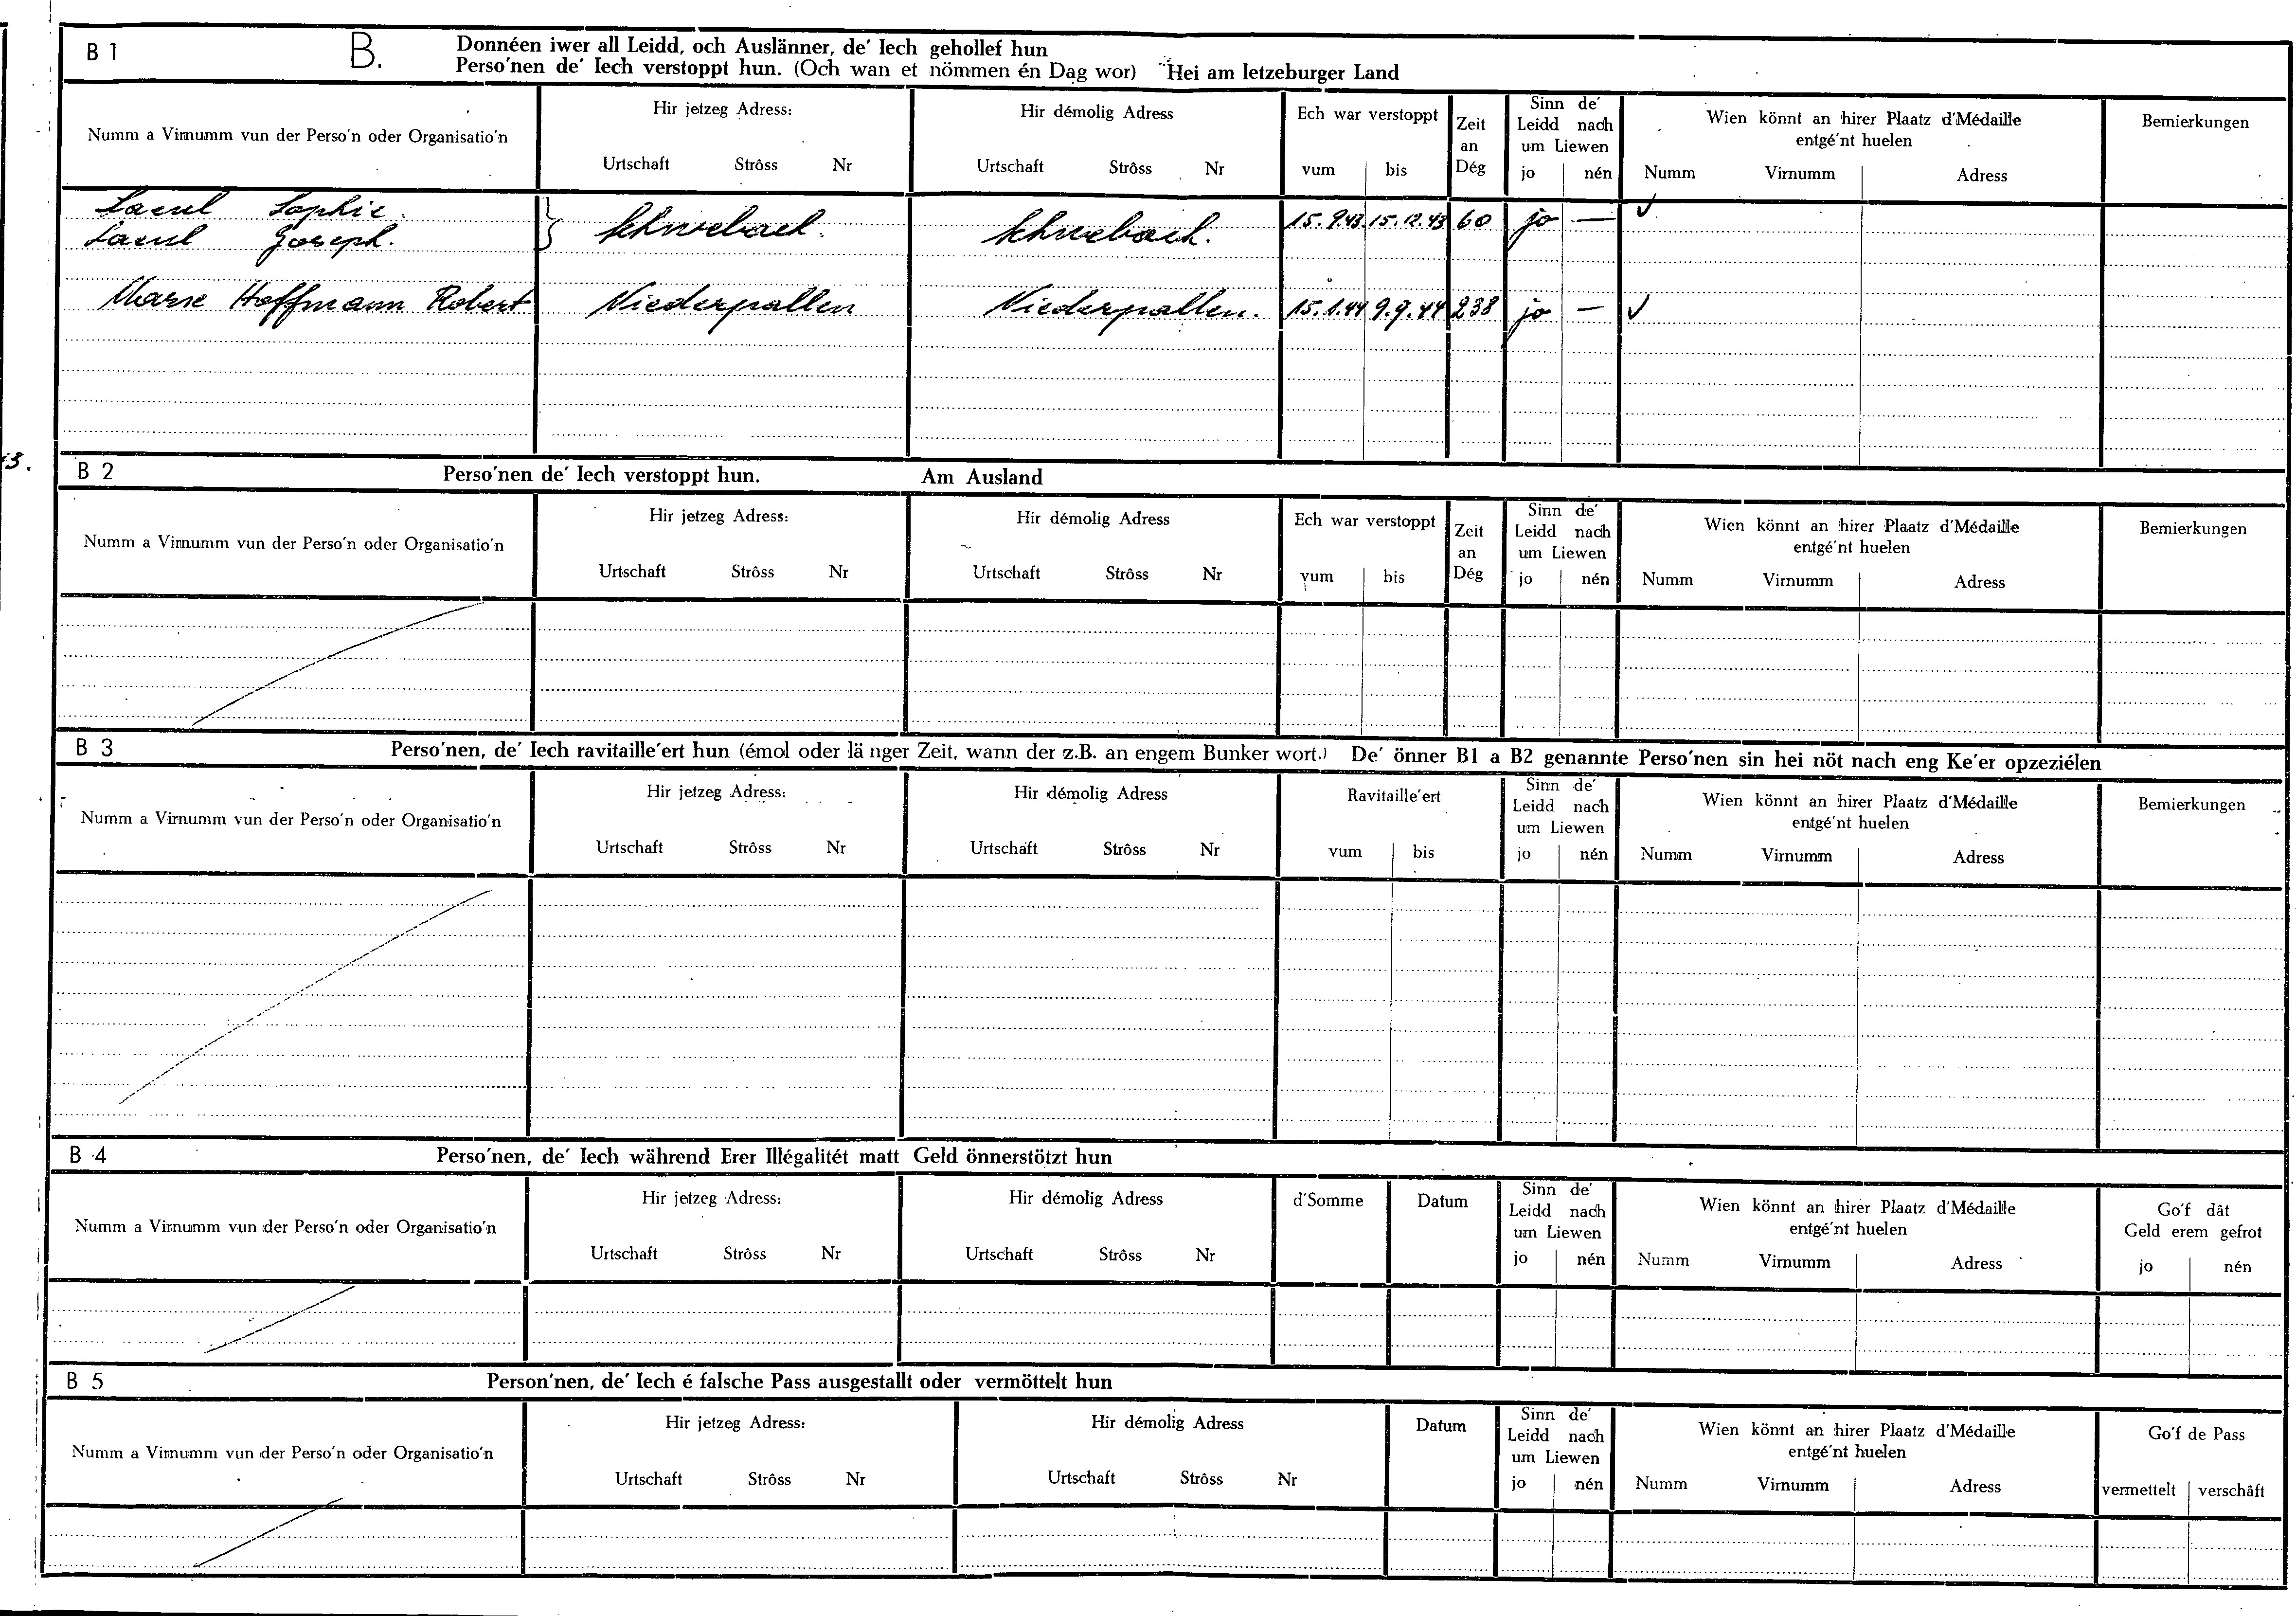 B 1 B. Donnéen iwer all Leidd, och Auslänner, de' Iech gehollef hun
Perso'nen de' Iech verstoppt hun. (Och wan et nömmen én Dag wor) Hei am letzeburger Land
Numm a Virnumm vun der Perso'n oder Organisatio'n
Hir jetzeg Adress:
Urtschaft Strôss Nr
Hir démolig Adress
Urtschaft Strôss Nr
Ech war verstoppt
vum bis
Zeit
an
Dég
Sinn de'
Leidd nach
um Liewen
jo nén
Wien könnt an hirer Plaatz d'Médaille
entgé'nt huelen
Numm Virnumm Adress
Bemierkungen
Sophie
Joseph.
} Schwebach. Schwebach. 15.9.43. 15.12.43 60 jo — ✓
Hoffmann Robert Niederpallen Niederpallen. 15.1.44 9.9.44 238 jo — ✓
3.
B 2 Perso'nen de' Iech verstoppt hun. Am Ausland
Numm a Virnumm vun der Perso'n oder Organisatio'n
Hir jetzeg Adress:
Urtschaft Strôss Nr
Hir démolig Adress
Urtschaft Strôss Nr
Ech war verstoppt
vum bis
Zeit
an
Dég
Sinn de'
Leidd nach
um Liewen
jo nén
Wien könnt an hirer Plaatz d'Médaille
entgé'nt huelen
Numm Virnumm Adress
Bemierkungen
B 3 Perso'nen, de' Iech ravitaille'ert hun (émol oder länger Zeit, wann der z.B. an engem Bunker wort.) De' önner B1 a B2 genannte Perso'nen sin hei nöt nach eng Ke'er opzeziélen
Numm a Virnumm vun der Perso'n oder Organisatio'n
Hir jetzeg Adress:
Urtschaft Strôss Nr
Hir démolig Adress
Urtschaft Strôss Nr
Ravitaille'ert
vum bis
Sinn de'
Leidd nach
um Liewen
jo nén
Wien könnt an hirer Plaatz d'Médaille
entgé'nt huelen
Numm Virnumm Adress
Bemierkungen
B 4 Perso'nen, de' Iech während Erer Illégalitét matt Geld önnerstötzt hun
Numm a Virnumm vun der Perso'n oder Organisatio'n
Hir jetzeg Adress:
Urtschaft Strôss Nr
Hir démolig Adress
Urtschaft Strôss Nr
d'Somme
Datum
Sinn de'
Leidd nach
um Liewen
jo nén
Wien könnt an hirer Plaatz d'Médaille
entgé'nt huelen
Numm Virnumm Adress
Go'f dât
Geld erem gefrot
jo nén
B 5 Person'nen, de' Iech é falsche Pass ausgestallt oder vermöttelt hun
Numm a Virnumm vun der Perso'n oder Organisatio'n
Hir jetzeg Adress:
Urtschaft Strôss Nr
Hir démolig Adress
Urtschaft Strôss Nr
Datum
Sinn de'
Leidd nach
um Liewen
jo nén
Wien könnt an hirer Plaatz d'Médaille
entgé'nt huelen
Numm Virnumm Adress
Go'f de Pass
vermettelt verschâft